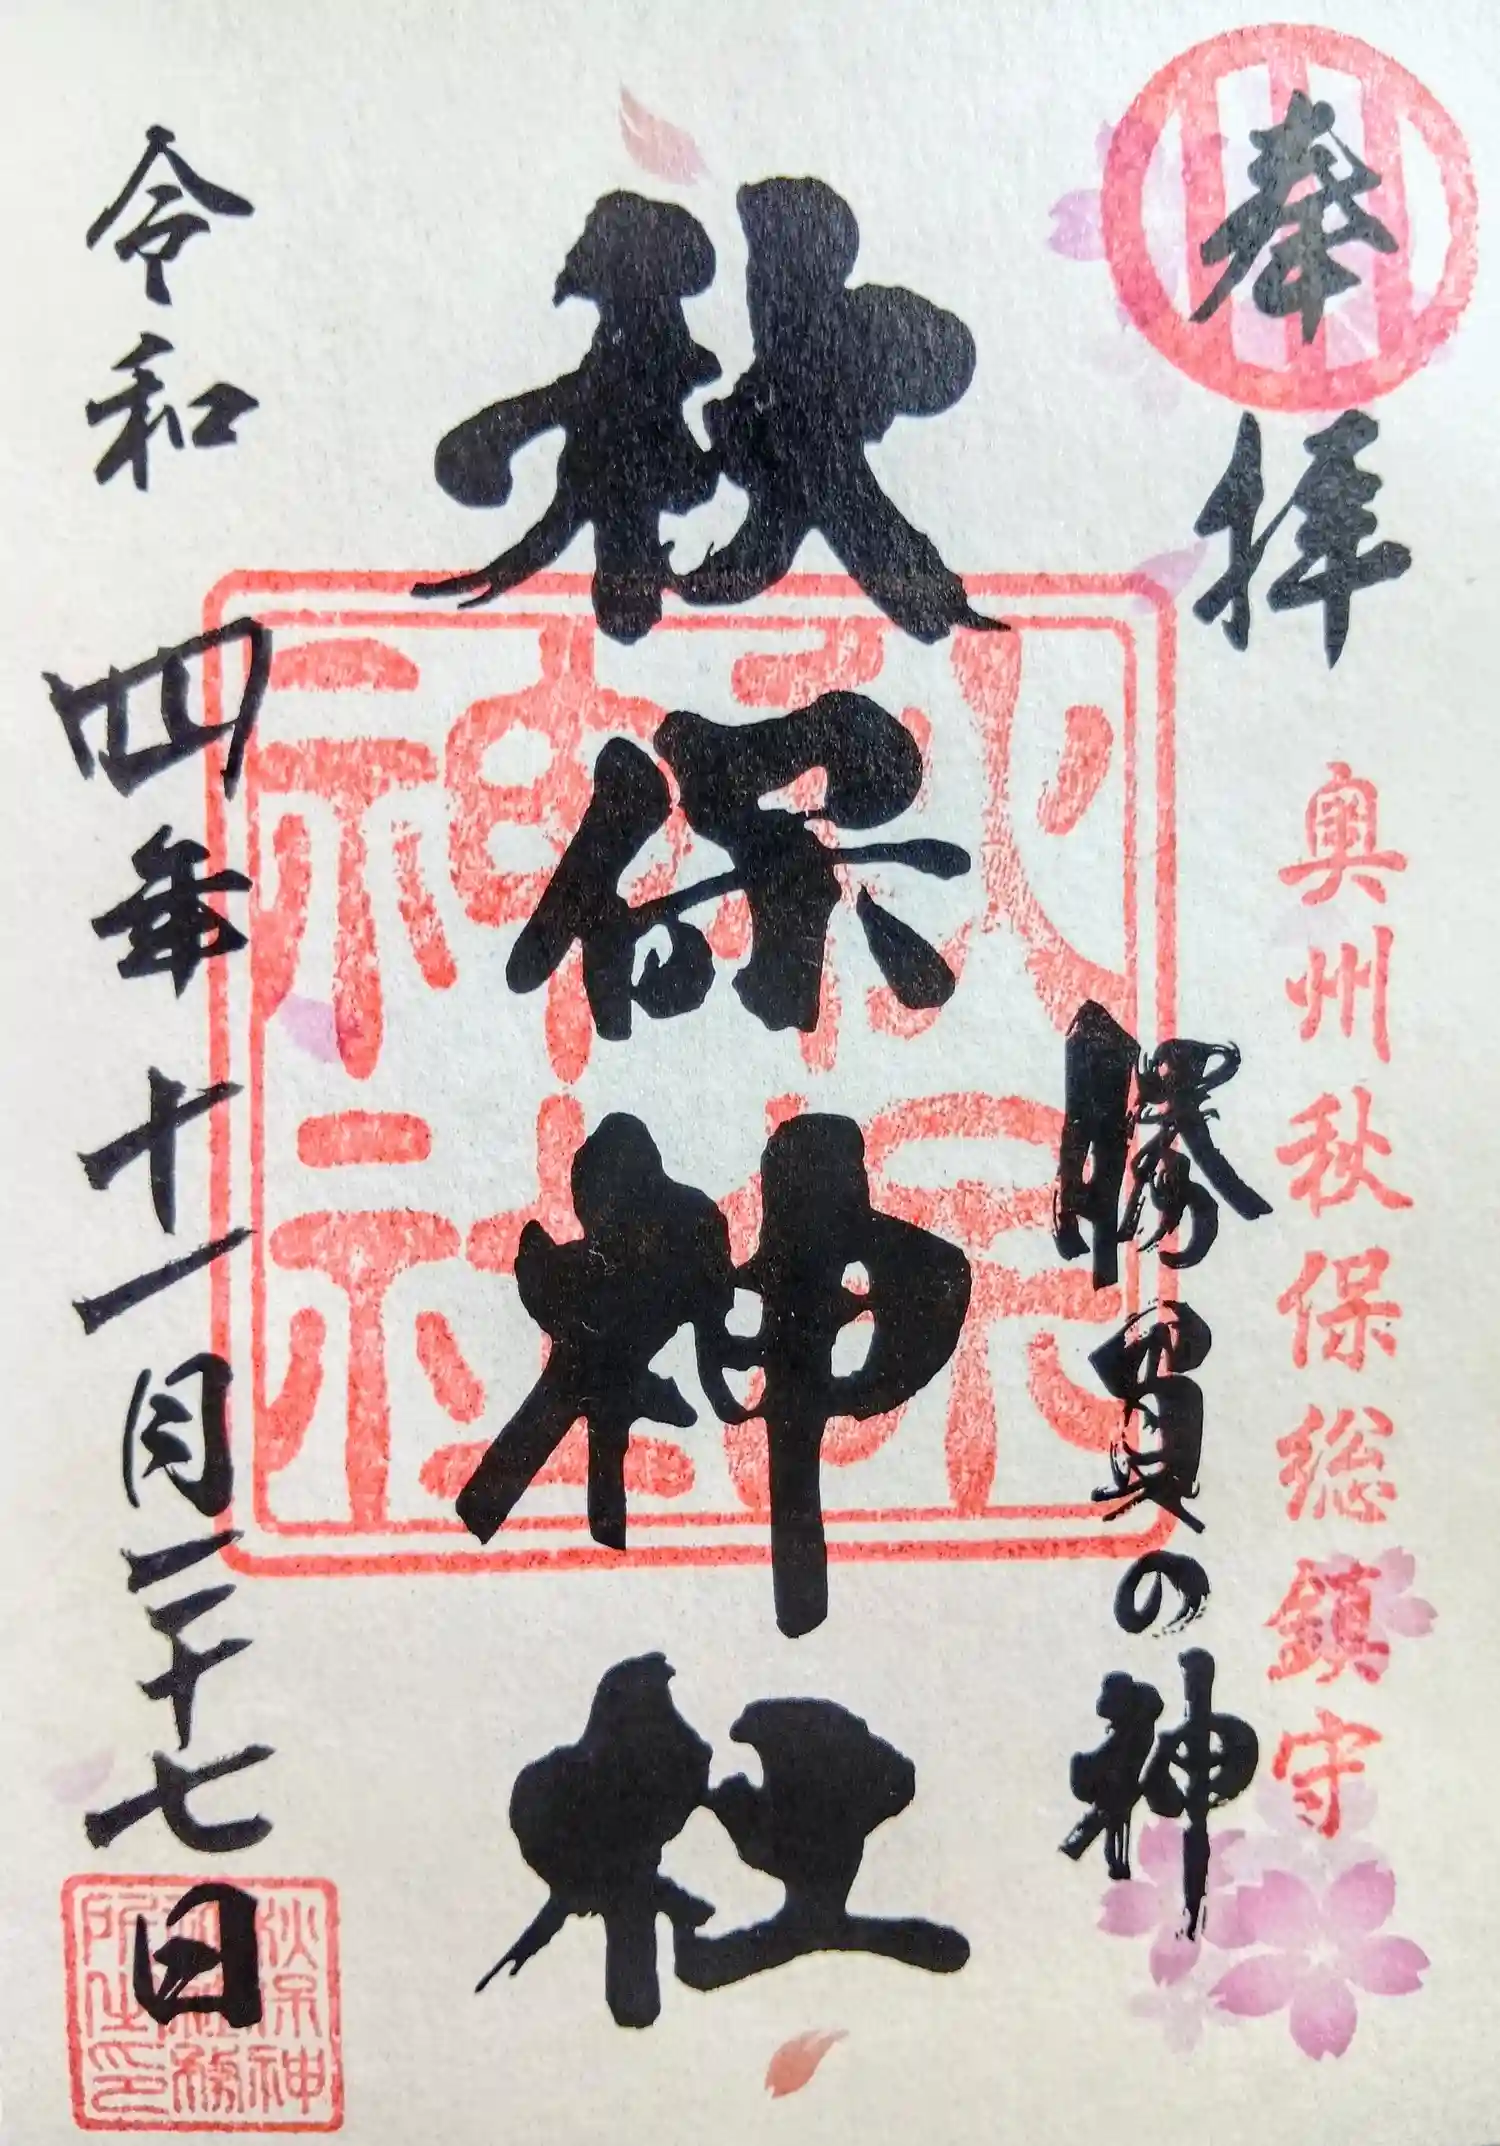 奉拝
奥州秋保総鎮守
勝負の神
秋保神社
秋保神社
令和四年十一月二十七日
秋保神
社務
所之印